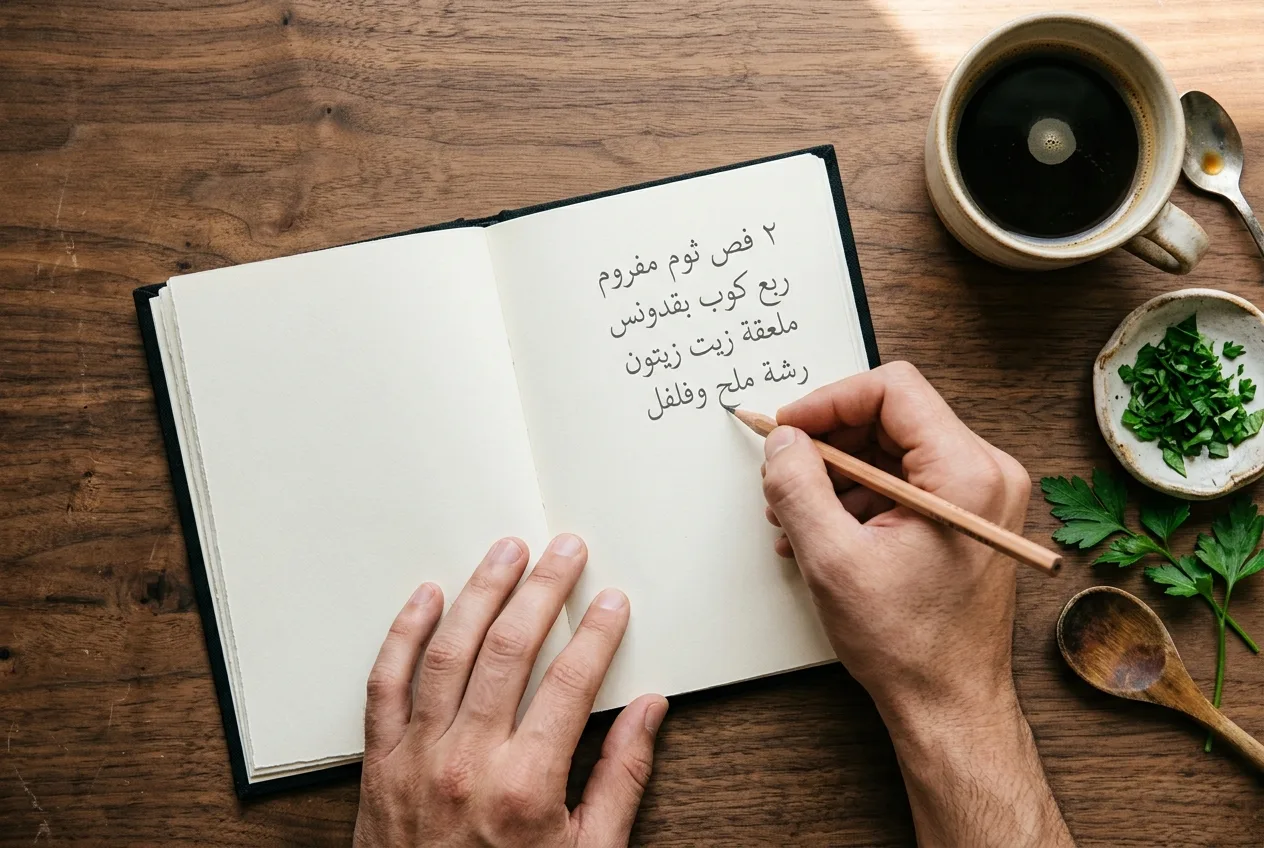 ٢ فص ثوم مفروم
ربع كوب بقدونس
ملعقة زيت زيتون
رشة ملح وفلفل